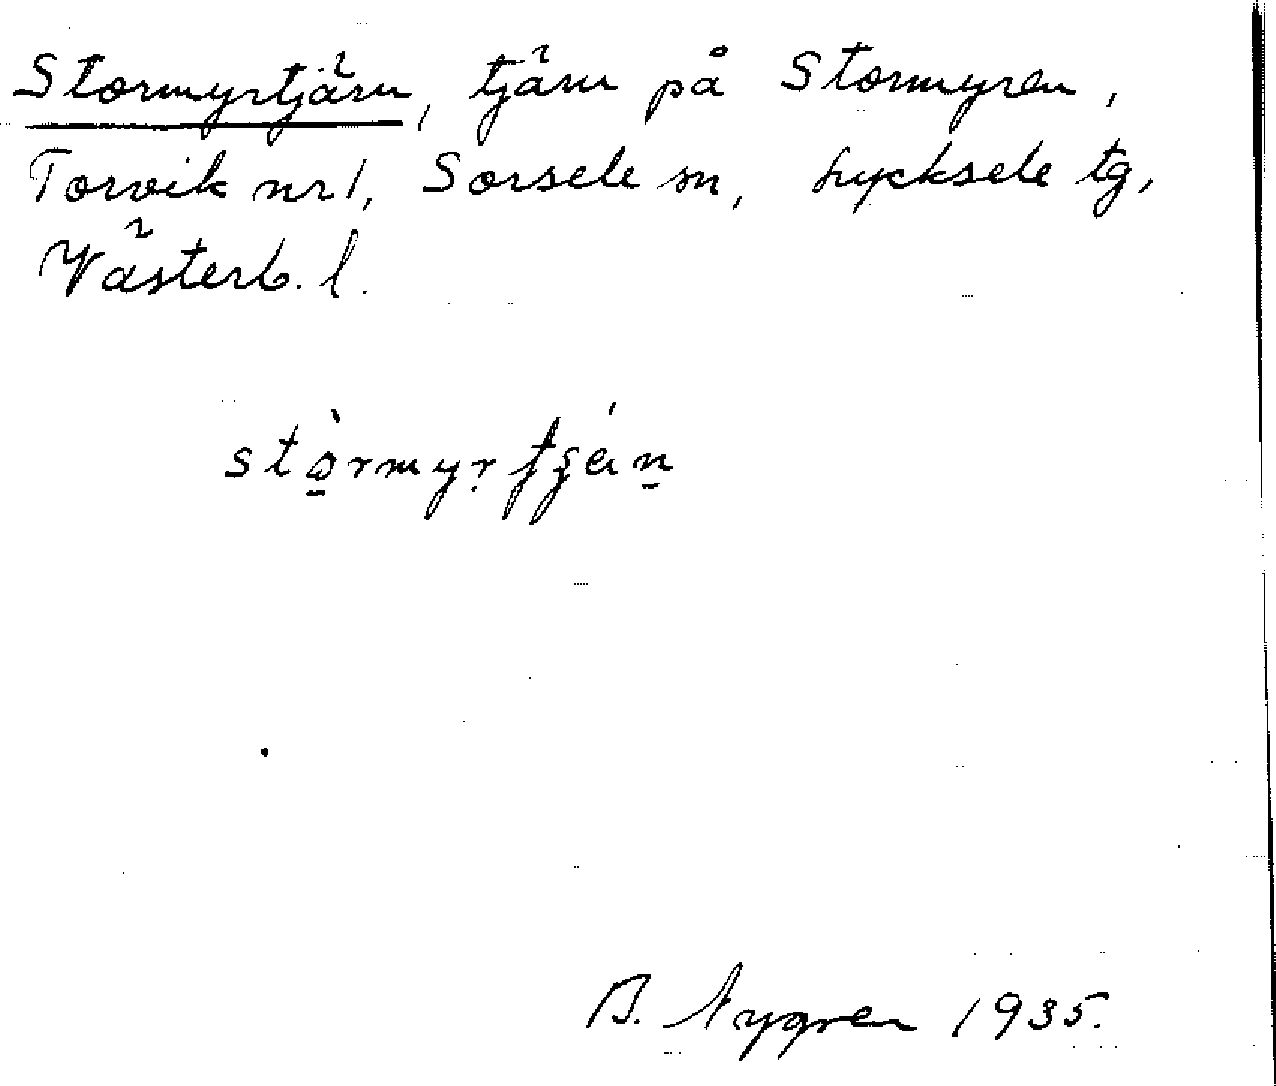 Stormyrtjärn, tjärn på Stormyren,
Torvik nr 1, Sorsele sn, Lycksele tg,
Västerb. l.
stò̱rmyrtʃɛ́ṉ
B. Nygren 1935.